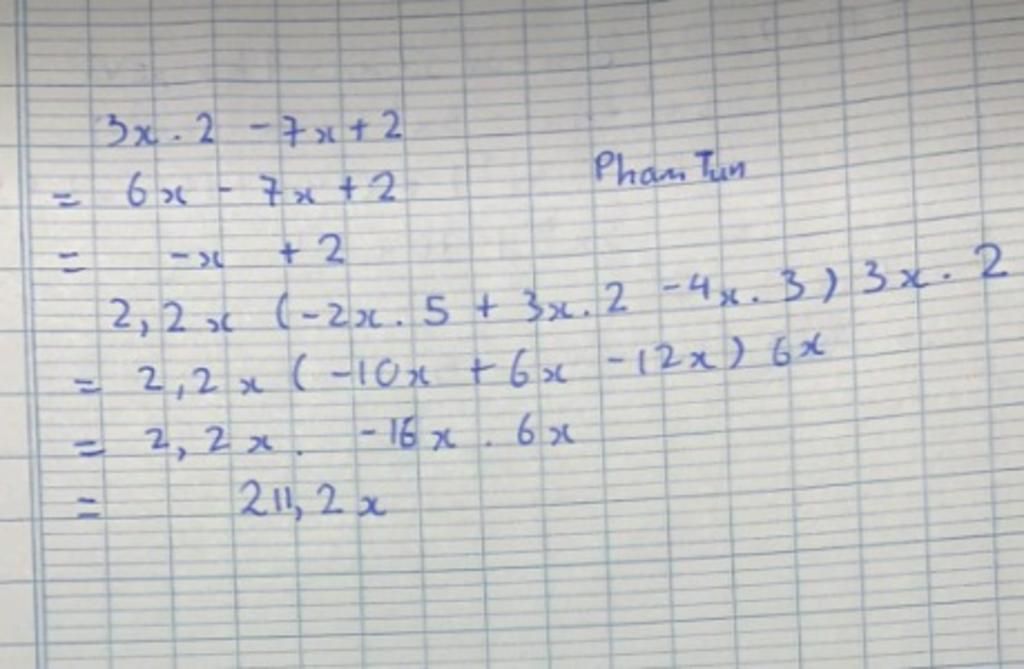 3x . 2 - 7x + 2
Pham Tun
= 6x - 7x + 2
= -x + 2
2,2x (-2x . 5 + 3x . 2 - 4x . 3) 3x . 2
= 2,2x (-10x + 6x - 12x) 6x
= 2,2x . -16x . 6x
= 211,2x